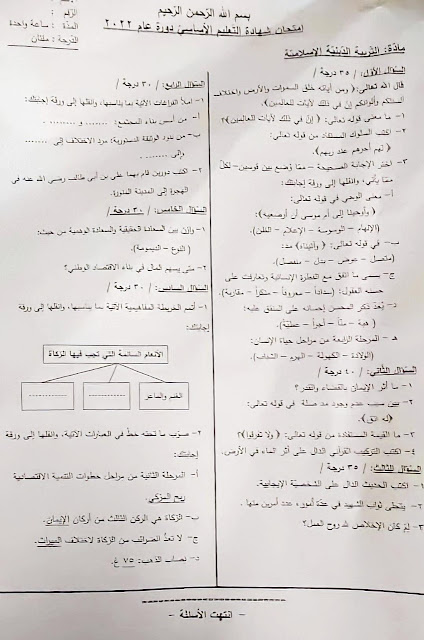 بسم الله الرّحمن الرّحيم
امتحان شهادة التعليم الأساسيّ دورة عام ٢٠٢٢
الرقم :
المدّة : ساعة واحدة
الدّرجة : مئتان
مادّة: التربية الدّينيّة الإسلاميّة
السؤال الأوّل: / ٣٥ درجة /
قال الله تعالى:﴿ ومن آياته خلق السموات والأرض واختلاف
ألسنتكم وألوانكم إنّ في ذلك لآيات للعالمين﴾
١- ما معنى قوله تعالى: ﴿ إنّ في ذلك لآيات للعالمين﴾؟
٢- اكتب السلوك المستفاد من قوله تعالى:
﴿ لهم أجرهم عند ربهم ﴾.
٣- اختر الإجابة الصحيحة – ممّا وُضع بين قوسين– لكلّ
ممّا يأتي، وانقلها إلى ورقة إجابتك:
أ– معنى الوحي في قوله تعالى:
﴿ وأوحينا إلى أم موسى أن أرضعيه ﴾:
(الإلهام – الوسوسة – الإعلام – الظن).
ب– في قوله تعالى: ﴿ وآتيناه﴾ مد:
(متصل – عوض – بدل – منفصل).
ج– يسمى ما اتفق مع الفطرة الإنسانية وتعارفت على
حسنه العقول: (سداداً – معروفاً – منكراً – مقاربة).
د– يُعدّ ذكر المحسن إحسانه على المنفق عليه:
( هبة – منّاً – أجراً – عطيّة).
هـ – المرحلة الرابعة من مراحل حياة الإنسان:
(الولادة – الكهولة – الهرم – الشباب).
السؤال الثاني: / ٤٠ درجة /
١– ما أثر الإيمان بالقضاء والقدر؟
٢– بيّن سبب عدم وجود مد صلة في قوله تعالى:
﴿له اتق﴾.
٣– ما القيمة المستفادة من قوله تعالى: ﴿ ولا تفرقوا﴾؟
٤– اكتب التركيب القرآني الدال على أثر الماء في الأرض.
السؤال الثالث: / ٣٥ درجة /
١– اكتب الحديث الدال على الشخصيّة الإيجابية.
٢– يتجلى ثواب الشهيد في عدّة أمور، عدد أمرين منها.
٣– لِمَ كان الإخلاص لله روح العمل؟
السؤال الرابع: / ٣٠ درجة /
١– املأ الفراغات الآتية بما يناسبها، وانقلها إلى ورقة إجابتك:
أ– من أسس بناء المجتمع: ........ و ........
ب– من بنود الوثيقة الدستورية: مرد الاختلاف إلى ........
وإلى ........
٢– اكتب دورين قام بهما علي بن أبي طالب رضي الله عنه في
الهجرة إلى المدينة المنورة.
السؤال الخامس: / ٣٠ درجة /
١– وازن بين السعادة الحقيقية والسعادة الوهمية من حيث:
( النوع – الديمومة).
٢– متى يسهم المال في بناء الاقتصاد الوطني؟
السؤال السادس: / ٣٠ درجة /
١– أتمم الخريطة المفاهيمية الآتية بما يناسبها، وانقلها إلى ورقة
إجابتك:
الأنعام السائمة التي تجب فيها الزكاة
الغنم والماعز
٢– صوّب ما تحته خطّ في العبارات الآتية، وانقلها إلى ورقة
إجابتك:
أ– المرحلة الثانية من مراحل خطوات التنمية الاقتصادية
ربح المزكي.
ب– الزكاة هي الركن الثالث من أركان الإيمان.
ج– لا تعدّ الضرائب من الزكاة لاختلاف الميراث.
د– نصاب الذهب: ٧٥ غ.
– انتهت الأسئلة –